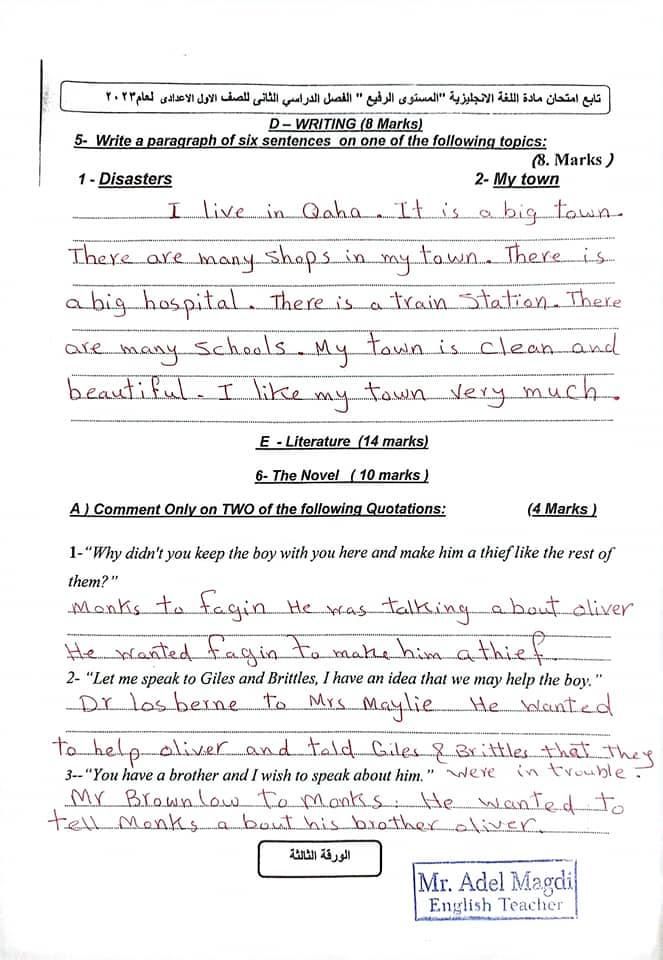 تابع امتحان مادة اللغة الانجليزية "المستوى الرفيع " الفصل الدراسي الثانى للصف الاول الاعدادى لعام ٢٠٢٣
D – WRITING (8 Marks)
5- Write a paragraph of six sentences on one of the following topics:
(8. Marks )
1 - Disasters 2- My town
I live in Qaha. It is a big town.
There are many shops in my town. There is
a big hospital. There is a train station. There
are many schools. My town is clean and
beautiful. I like my town very much.
E - Literature (14 marks)
6- The Novel ( 10 marks )
A ) Comment Only on TWO of the following Quotations: (4 Marks )
1-"Why didn't you keep the boy with you here and make him a thief like the rest of
them?"
Monks to fagin He was talking about oliver
He wanted fagin to make him a thief
2- "Let me speak to Giles and Brittles, I have an idea that we may help the boy."
Dr losberne to Mrs Maylie He wanted
to help oliver and told Giles & Brittles that they
were in trouble.
3--"You have a brother and I wish to speak about him."
Mr Brownlow to Monks. He wanted to
tell Monks about his brother oliver.
الورقة الثالثة
Mr. Adel Magdi
English Teacher